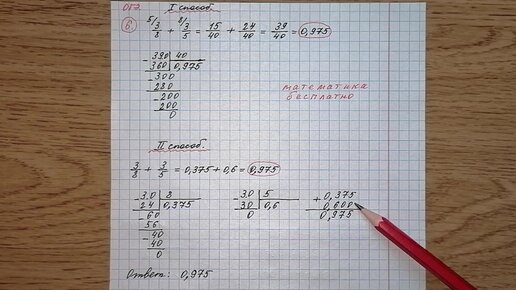 ОГЭ I способ.
6 5/ 3/8 + 8/ 3/5 = 15/40 + 24/40 = 39/40 = 0,975
- 390 | 40
360 | 0,975
- 300
280
- 200
200
0
математика
бесплатно
II способ.
3/8 + 3/5 = 0,375 + 0,6 = 0,975
- 3,0 | 8 - 3,0 | 5 + 0,375
24 | 0,375 30 | 0,6 0,600
- 60 0 0,975
56
- 40
40
0
Ответ: 0,975